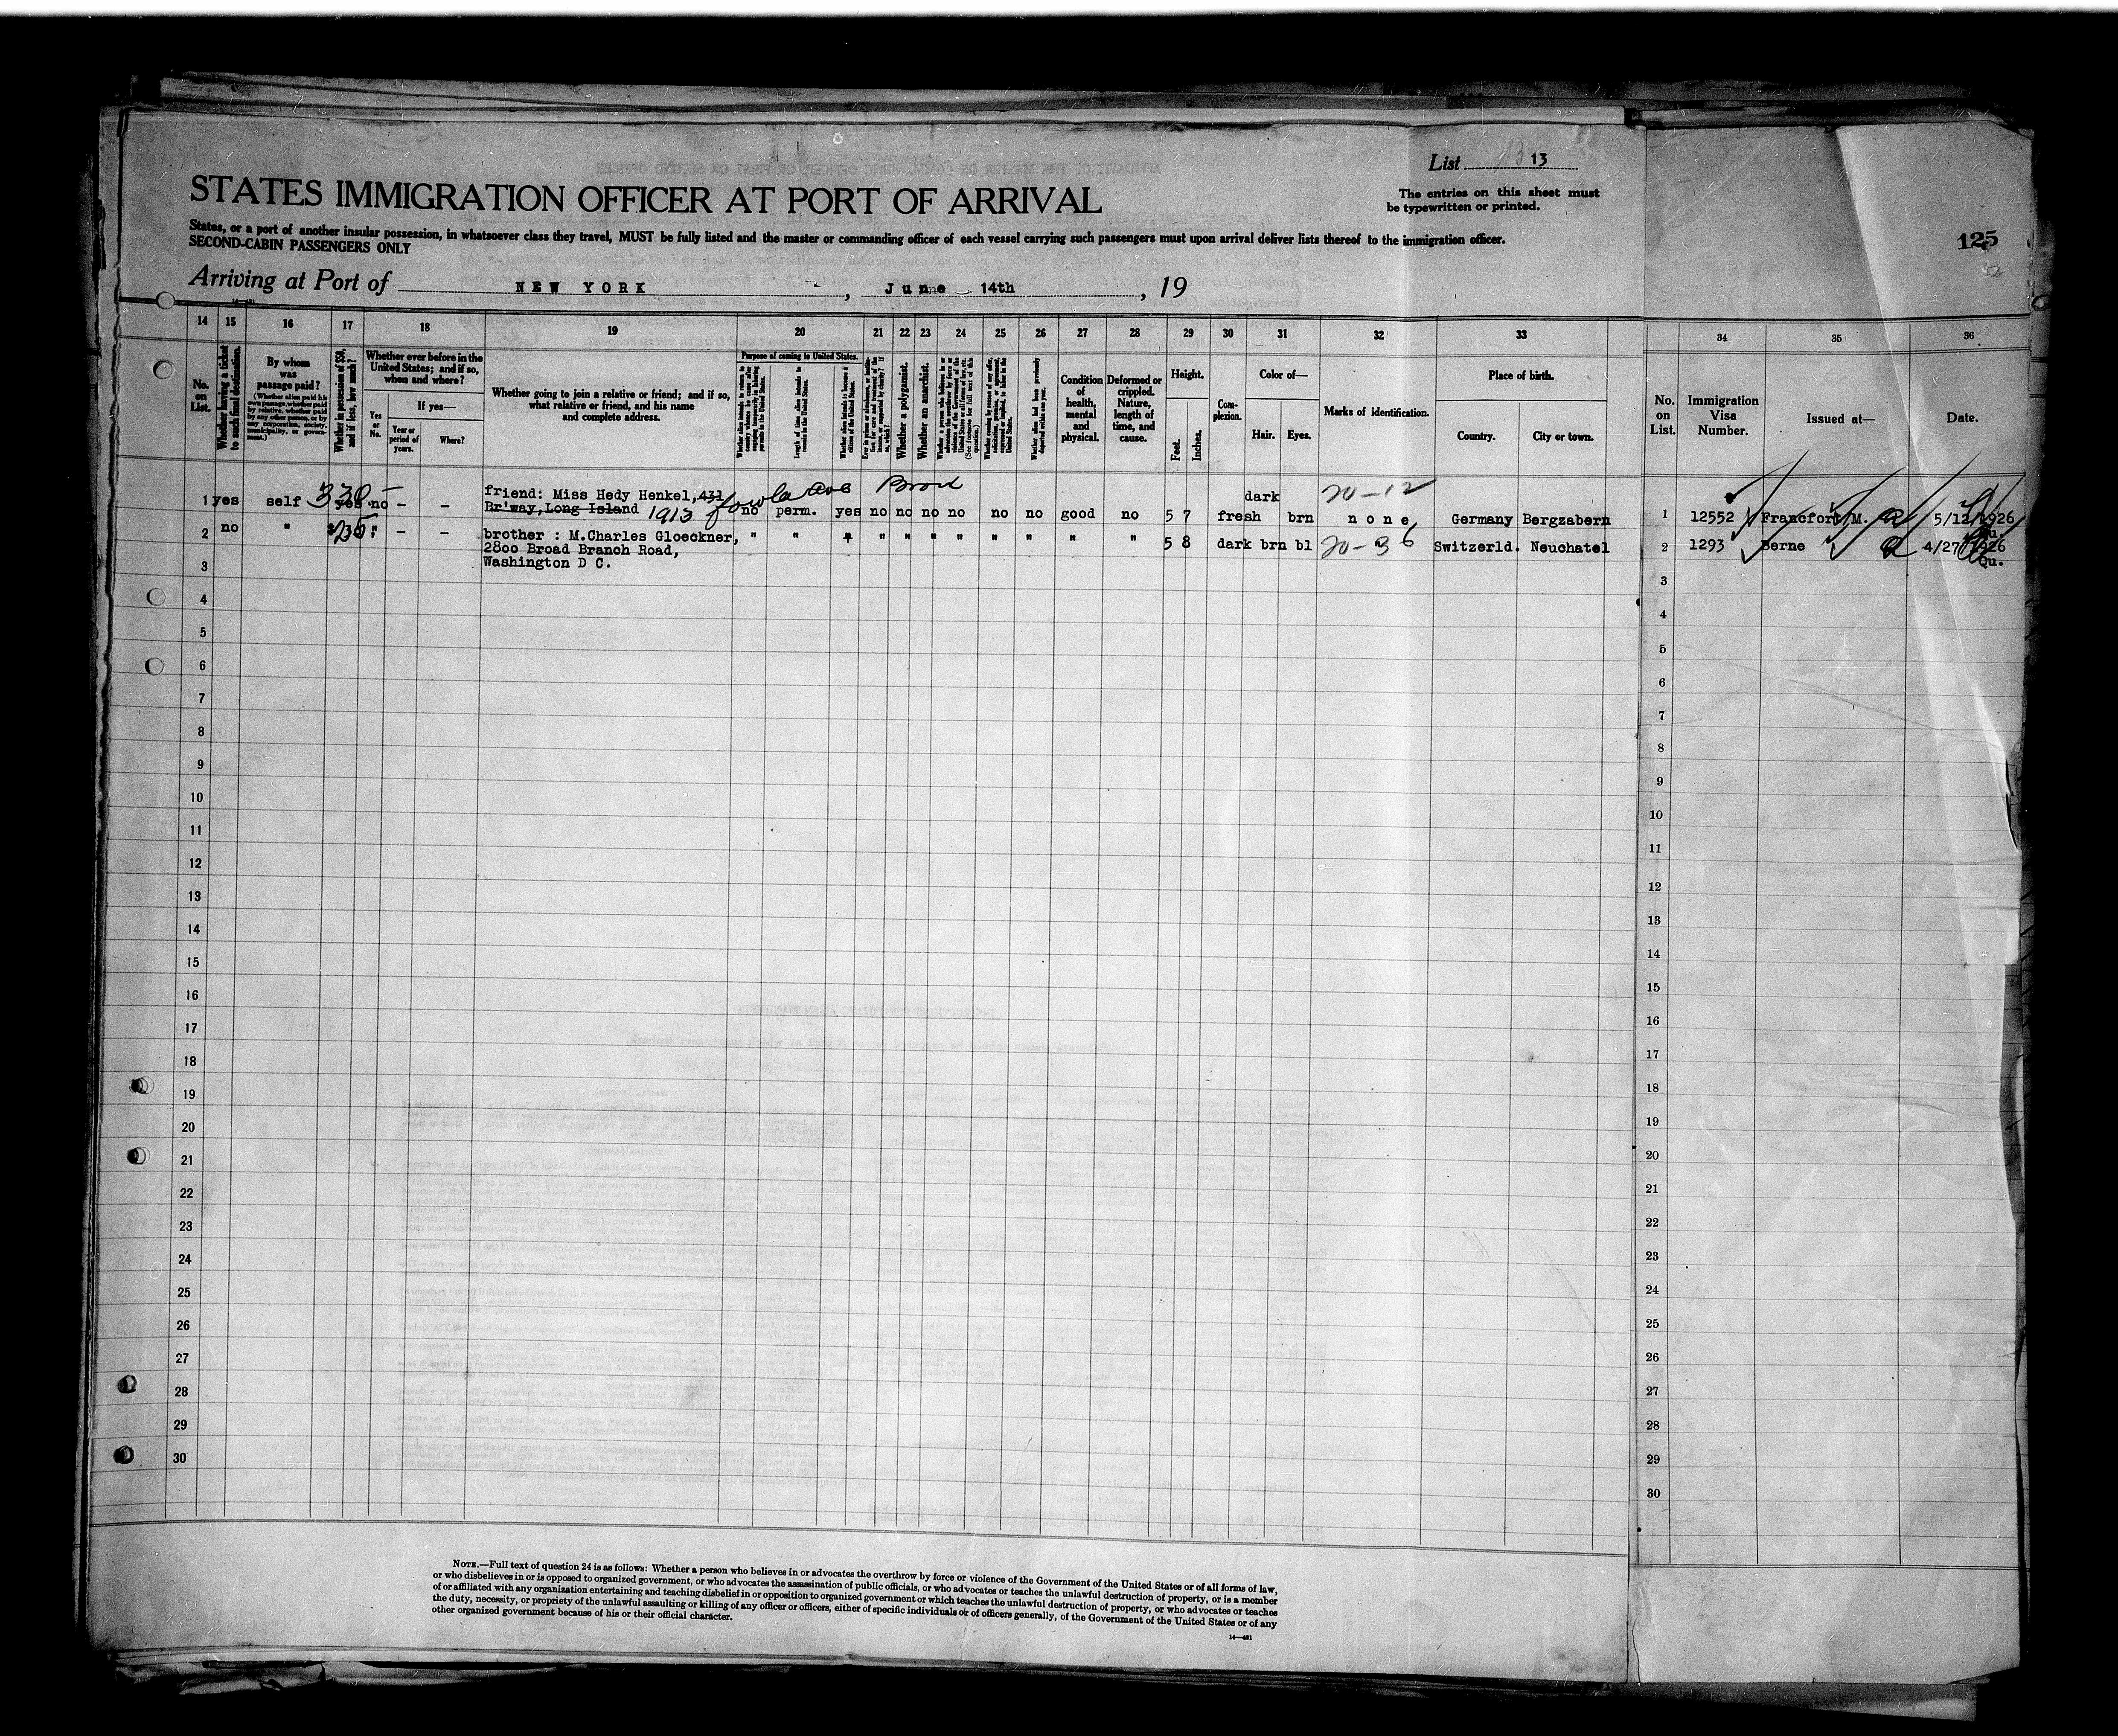 List 13 13
The entries on this sheet must
be typewritten or printed.
STATES IMMIGRATION OFFICER AT PORT OF ARRIVAL
States, or a port of another insular possession, in whatsoever class they travel, MUST be fully listed and the master or commanding officer of each vessel carrying such passengers must upon arrival deliver lists thereof to the immigration officer.
SECOND-CABIN PASSENGERS ONLY
125
Arriving at Port of NEW YORK, June 14th, 19
14 15 16 17 18 19 20 21 22 23 24 25 26 27 28 29 30 31 32 33 34 35 36
No. on List.
Whether having a ticket to such final destination.
By whom was passage paid?
(Whether alien paid his own passage, whether paid by relative, whether paid by any other person, or by any corporation, society, municipality, or government.)
Whether in possession of $50, and if less, how much?
Whether ever before in the United States; and if so, when and where?
Yes or No.
If yes—
Year or period of years.
Where?
Whether going to join a relative or friend; and if so, what relative or friend, and his name and complete address.
Purpose of coming to United States.
Length of time alien intends to remain in the United States.
Whether alien intends to become a citizen of the United States.
Whether a polygamist.
Whether an anarchist.
Whether alien had been previously deported within one year.
Condition of health, mental and physical.
Deformed or crippled. Nature, length of time, and cause.
Height.
Feet.
Inches.
Complexion.
Color of—
Hair.
Eyes.
Marks of identification.
Place of birth.
Country.
City or town.
No. on List.
Immigration Visa Number.
Issued at—
Date.
1 yes self 330 – yes no – – friend: Miss Hedy Henkel, 431 Ave Bronx dark 20-12
Br'way, Long Island 1913 no perm. yes no no no no no no good no 5 7 fresh brn none Germany Bergzabern 1 12552 Francfort/M. 5/12/1926
2 no " 35 " – – brother : M.Charles Gloeckner, " " " " " " " " " " " 5 8 dark brn bl 20-36 Switzerld. Neuchatel 2 1293 Berne 4/27/1926
2800 Broad Branch Road, Qu.
3 Washington D C. 3
4 4
5 5
6 6
7 7
8 8
9 9
10 10
11 11
12 12
13 13
14 14
15 15
16 16
17 17
18 18
19 19
20 20
21 21
22 22
23 23
24 24
25 25
26 26
27 27
28 28
29 29
30 30
NOTE.—Full text of question 24 is as follows: Whether a person who believes in or advocates the overthrow by force or violence of the Government of the United States or of all forms of law,
or who disbelieves in or is opposed to organized government, or who advocates the assassination of public officials, or who advocates or teaches the unlawful destruction of property, or is a member
of or affiliated with any organization entertaining and teaching disbelief in or opposition to organized government or which teaches the unlawful destruction of property, or who advocates or teaches
the duty, necessity, or propriety of the unlawful assaulting or killing of any officer or officers, either of specific individuals or of officers generally, of the Government of the United States or of any
other organized government because of his or their official character.
14—421